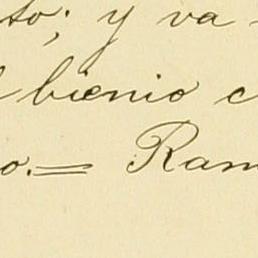 to; y va
bienio c
o.= Ram